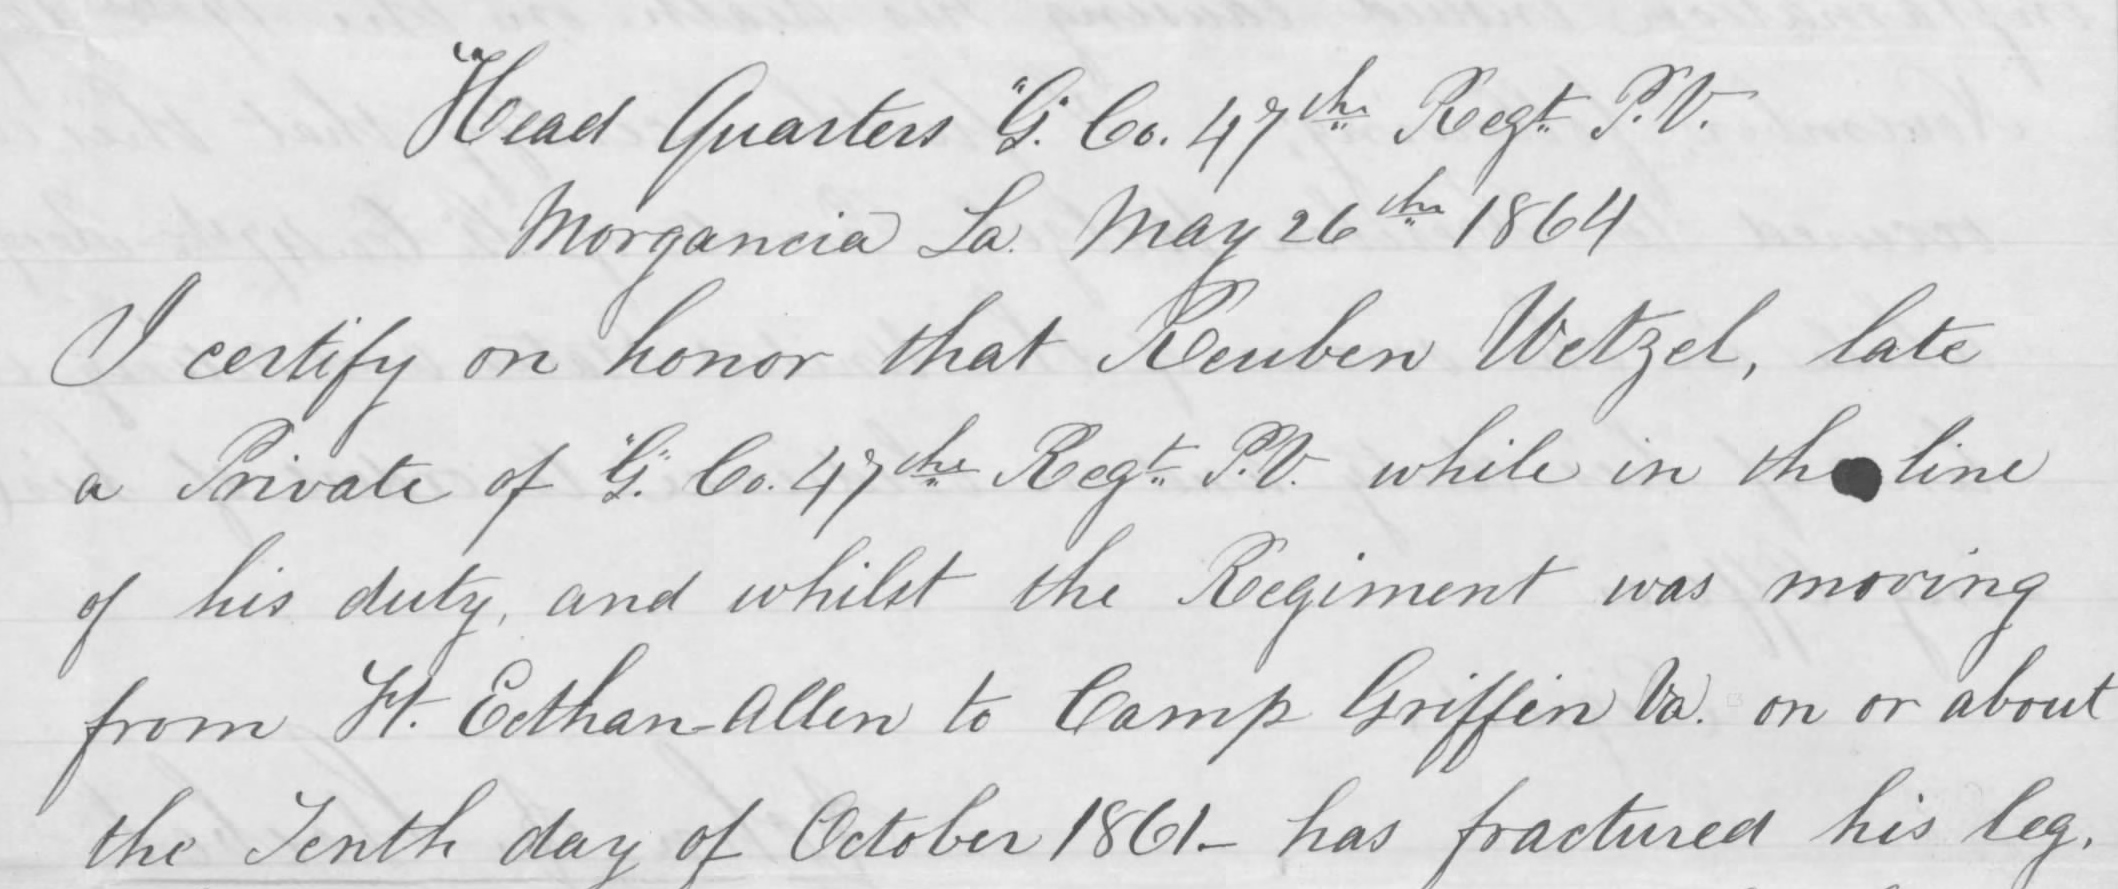 Head Quarters "G." Co. 47th Regt. P.V.
Morgancia La. May 26th 1864
I certify on honor that Reuben Wetzel, late
a Private of "G." Co. 47th Regt. P.V. while in the line
of his duty, and whilst the Regiment was moving
from Ft. Eethan-Allen to Camp Griffin Va. on or about
the Tenth day of October 1861- has fractured his leg.